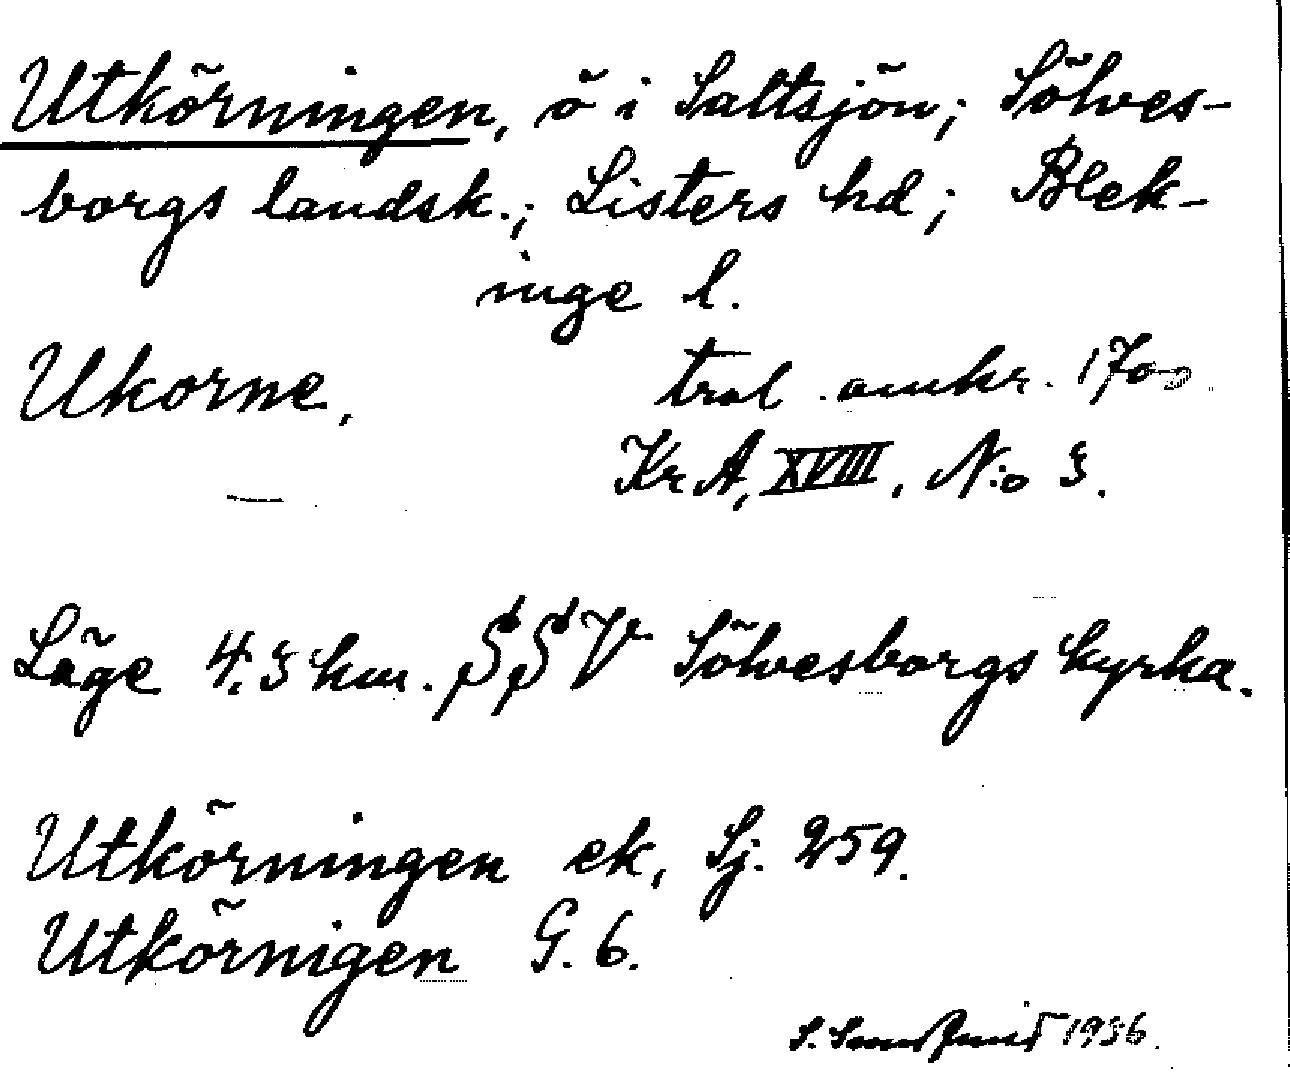 Utkörningen, ö i Saltsjön; Sölves-
borgs landsk.; Listers hd; Blek-
inge l.
Ukorne, trol. omkr. 1700.
Kr A, XVIII, N:o 3.
Läge 4.3 km. SSV Sölvesborgs kyrka.
Utkörningen ek, Sj. 259.
Utkörnigen G. 6.
S. 1936.